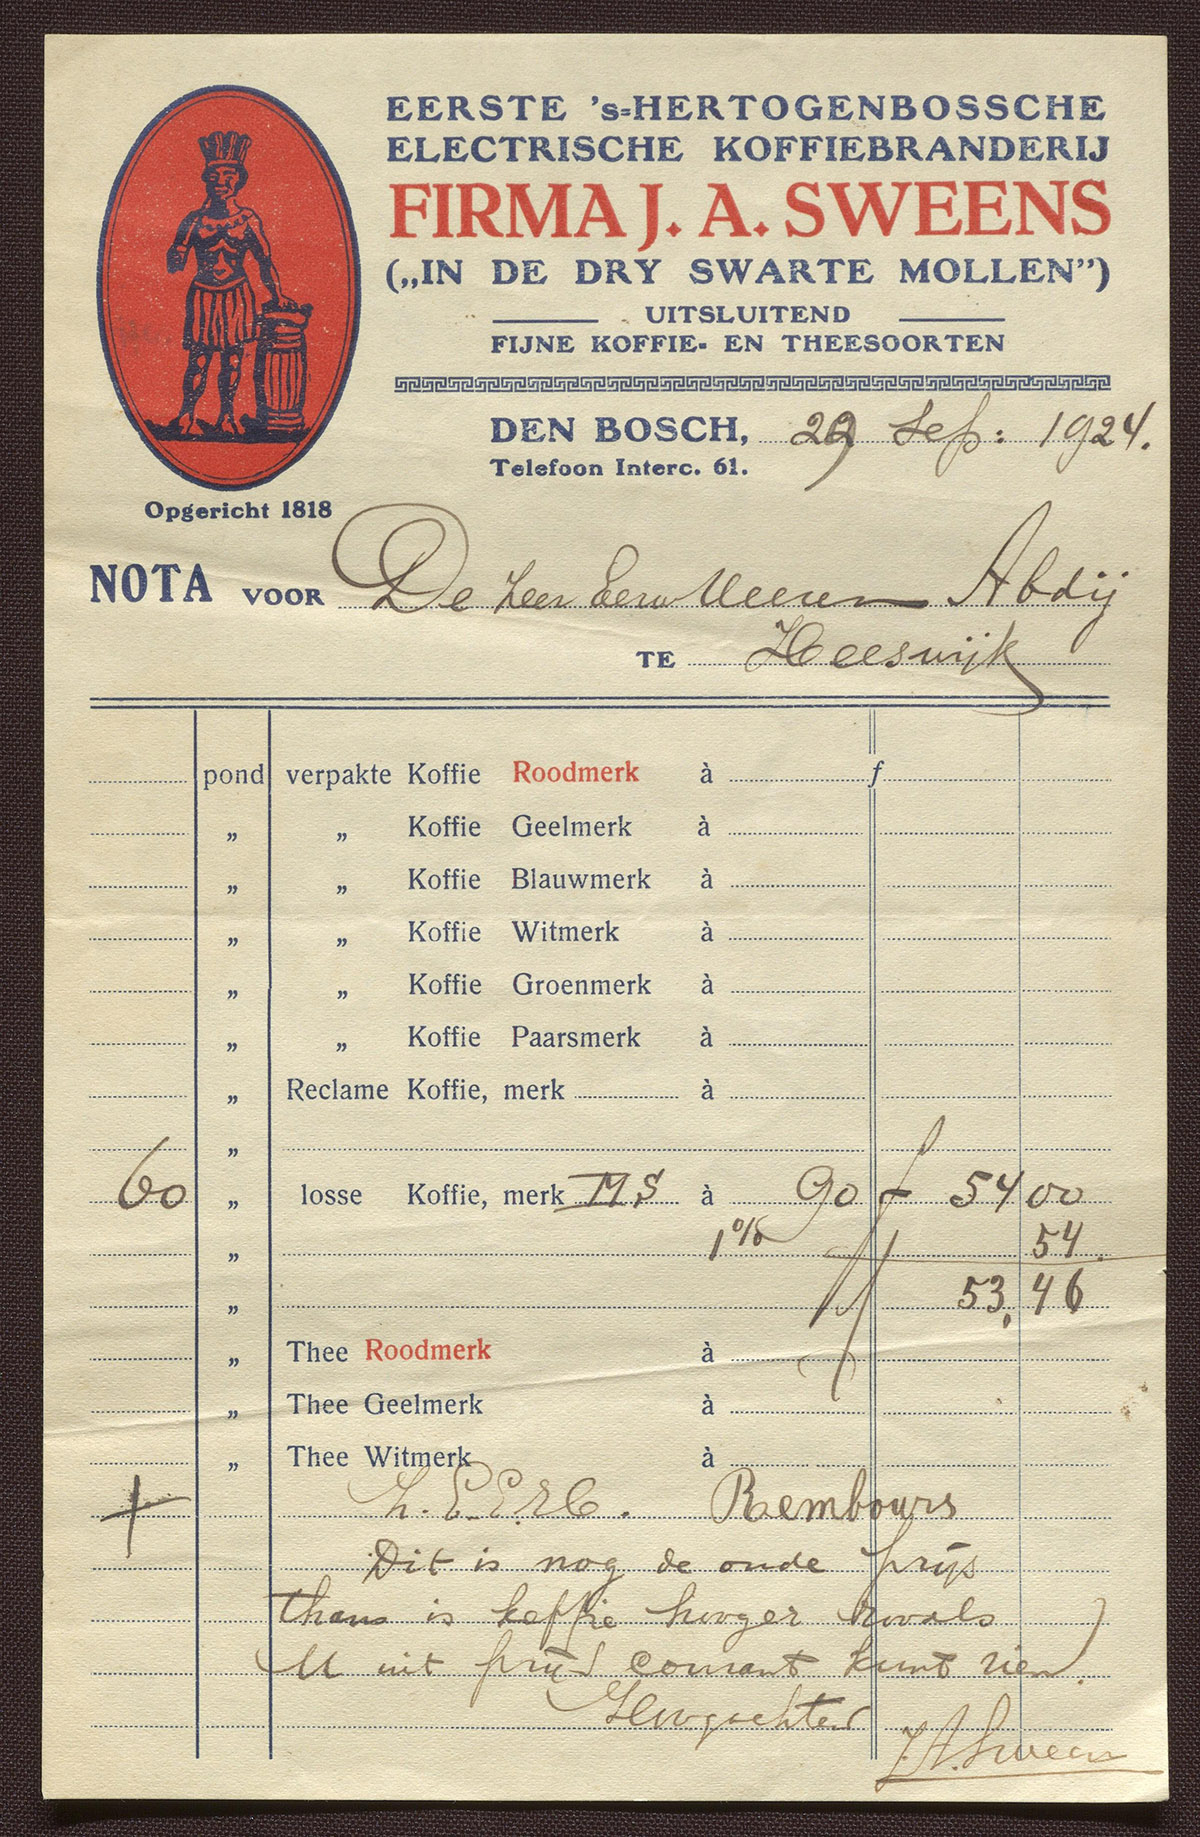 EERSTE 's-HERTOGENBOSSCHE
ELECTRISCHE KOFFIEBRANDERIJ
FIRMA J. A. SWEENS
(„IN DE DRY SWARTE MOLLEN”)
UITSLUITEND
FIJNE KOFFIE- EN THEESOORTEN
DEN BOSCH, 29 Sep: 1924.
Telefoon Interc. 61.
Opgericht 1818
NOTA VOOR De Zeer Eerw Heeren Abdij
TE Heeswijk
pond verpakte Koffie Roodmerk à f
„ „ Koffie Geelmerk à
„ „ Koffie Blauwmerk à
„ „ Koffie Witmerk à
„ „ Koffie Groenmerk à
„ „ Koffie Paarsmerk à
„ Reclame Koffie, merk à
„
60 „ losse Koffie, merk MS à 90 f 54 00
„ 1% 54
„ f 53,46
„ Thee Roodmerk à
„ Thee Geelmerk à
„ Thee Witmerk à
Rembours
Dit is nog de oude prijs
thans is koffie hooger zooals
U uit prijs courant kunt zien)
Hoogachtend
J.A. Sweens